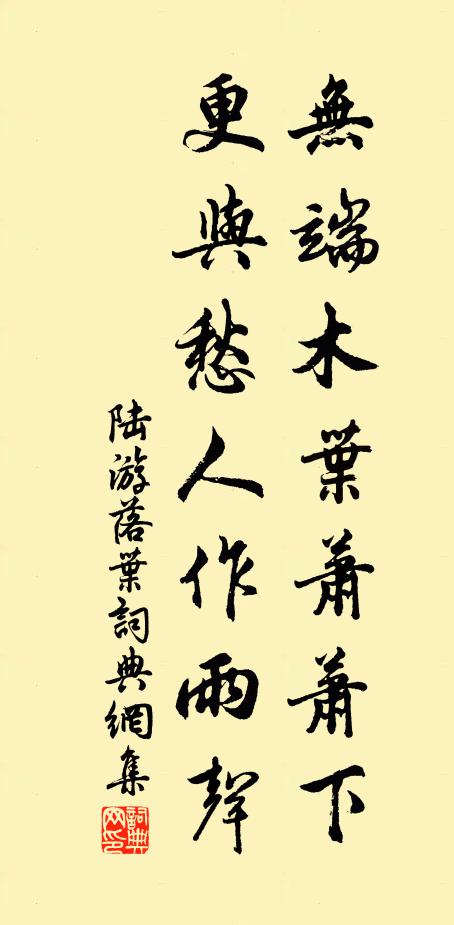 無端木葉蕭蕭下
更與愁人作雨聲
陸游落葉詞典網集
詞典網印